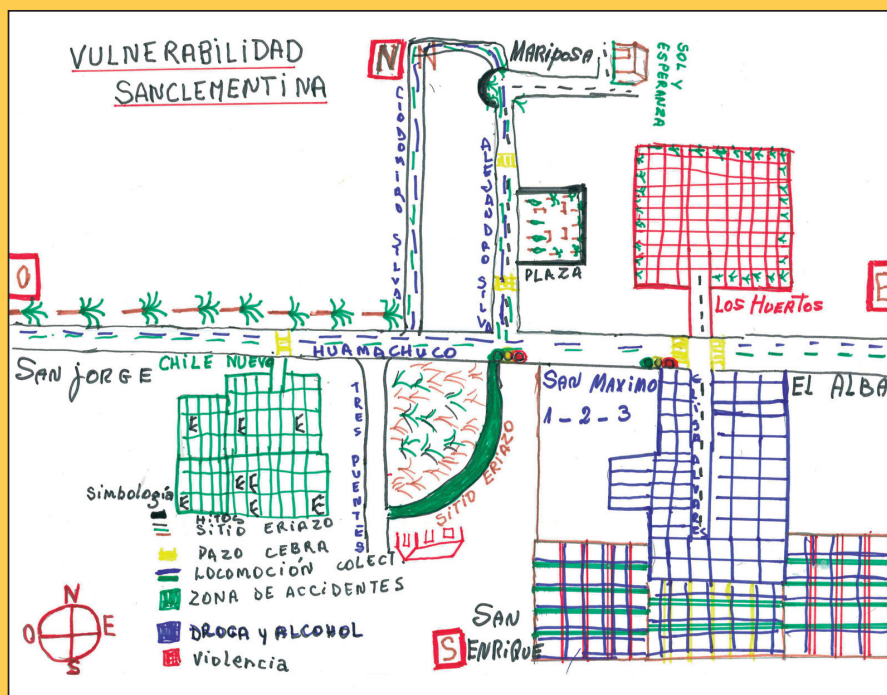 VULNERABILIDAD
SANCLEMENTINA
N
N
MARIPOSA
SOL Y
ESPERANZA
CLODOMIRO SILVA
ALEJANDRO SILVA
PLAZA
O
E
LOS HUERTOS
HUAMACHUCO
SAN JORGE
CHILE NUEVO
TRES PUENTES
SAN MAXIMO
1 - 2 - 3
EL ALBA
ELISA ALVARES
SITIO ERIAZO
E
E
E
E
E
E
E
Simbología
HITOS
SITIO ERIAZO
PAZO CEBRA
LOCOMOCIÓN COLECT.
ZONA DE ACCIDENTES
DROGA y ALCOHOL
Violencia
N
O
E
S
S
SAN
ENRIQUE